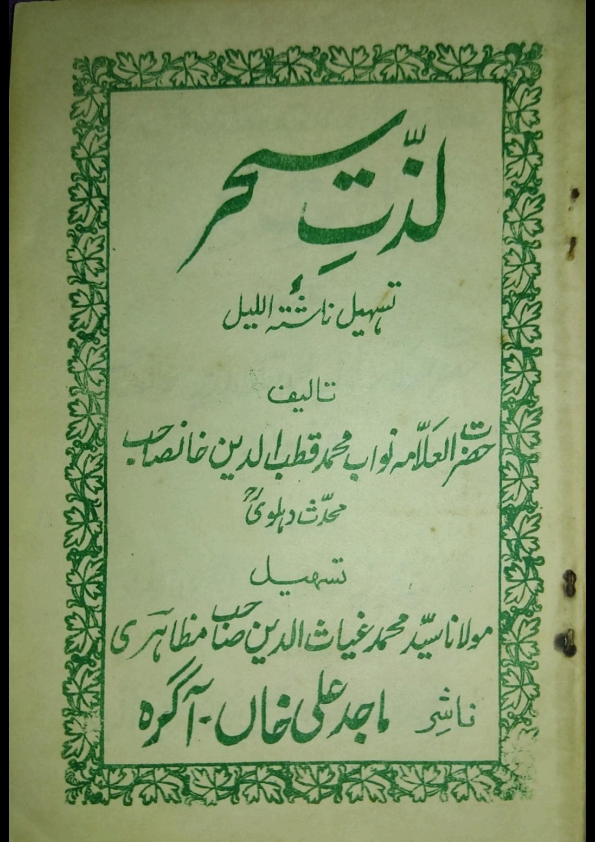 لذّتِ سحر
تسہیل ناشئتہ اللیل
تالیف
حضرت العلّامہ نواب محمد قطب الدین خانصاحب
محدّث دہلویؒ
تسہیل
مولانا سیّد محمد غیاث الدین صاحب مظاہری
ناشِر ماجد علی خاں۔ آگرہ